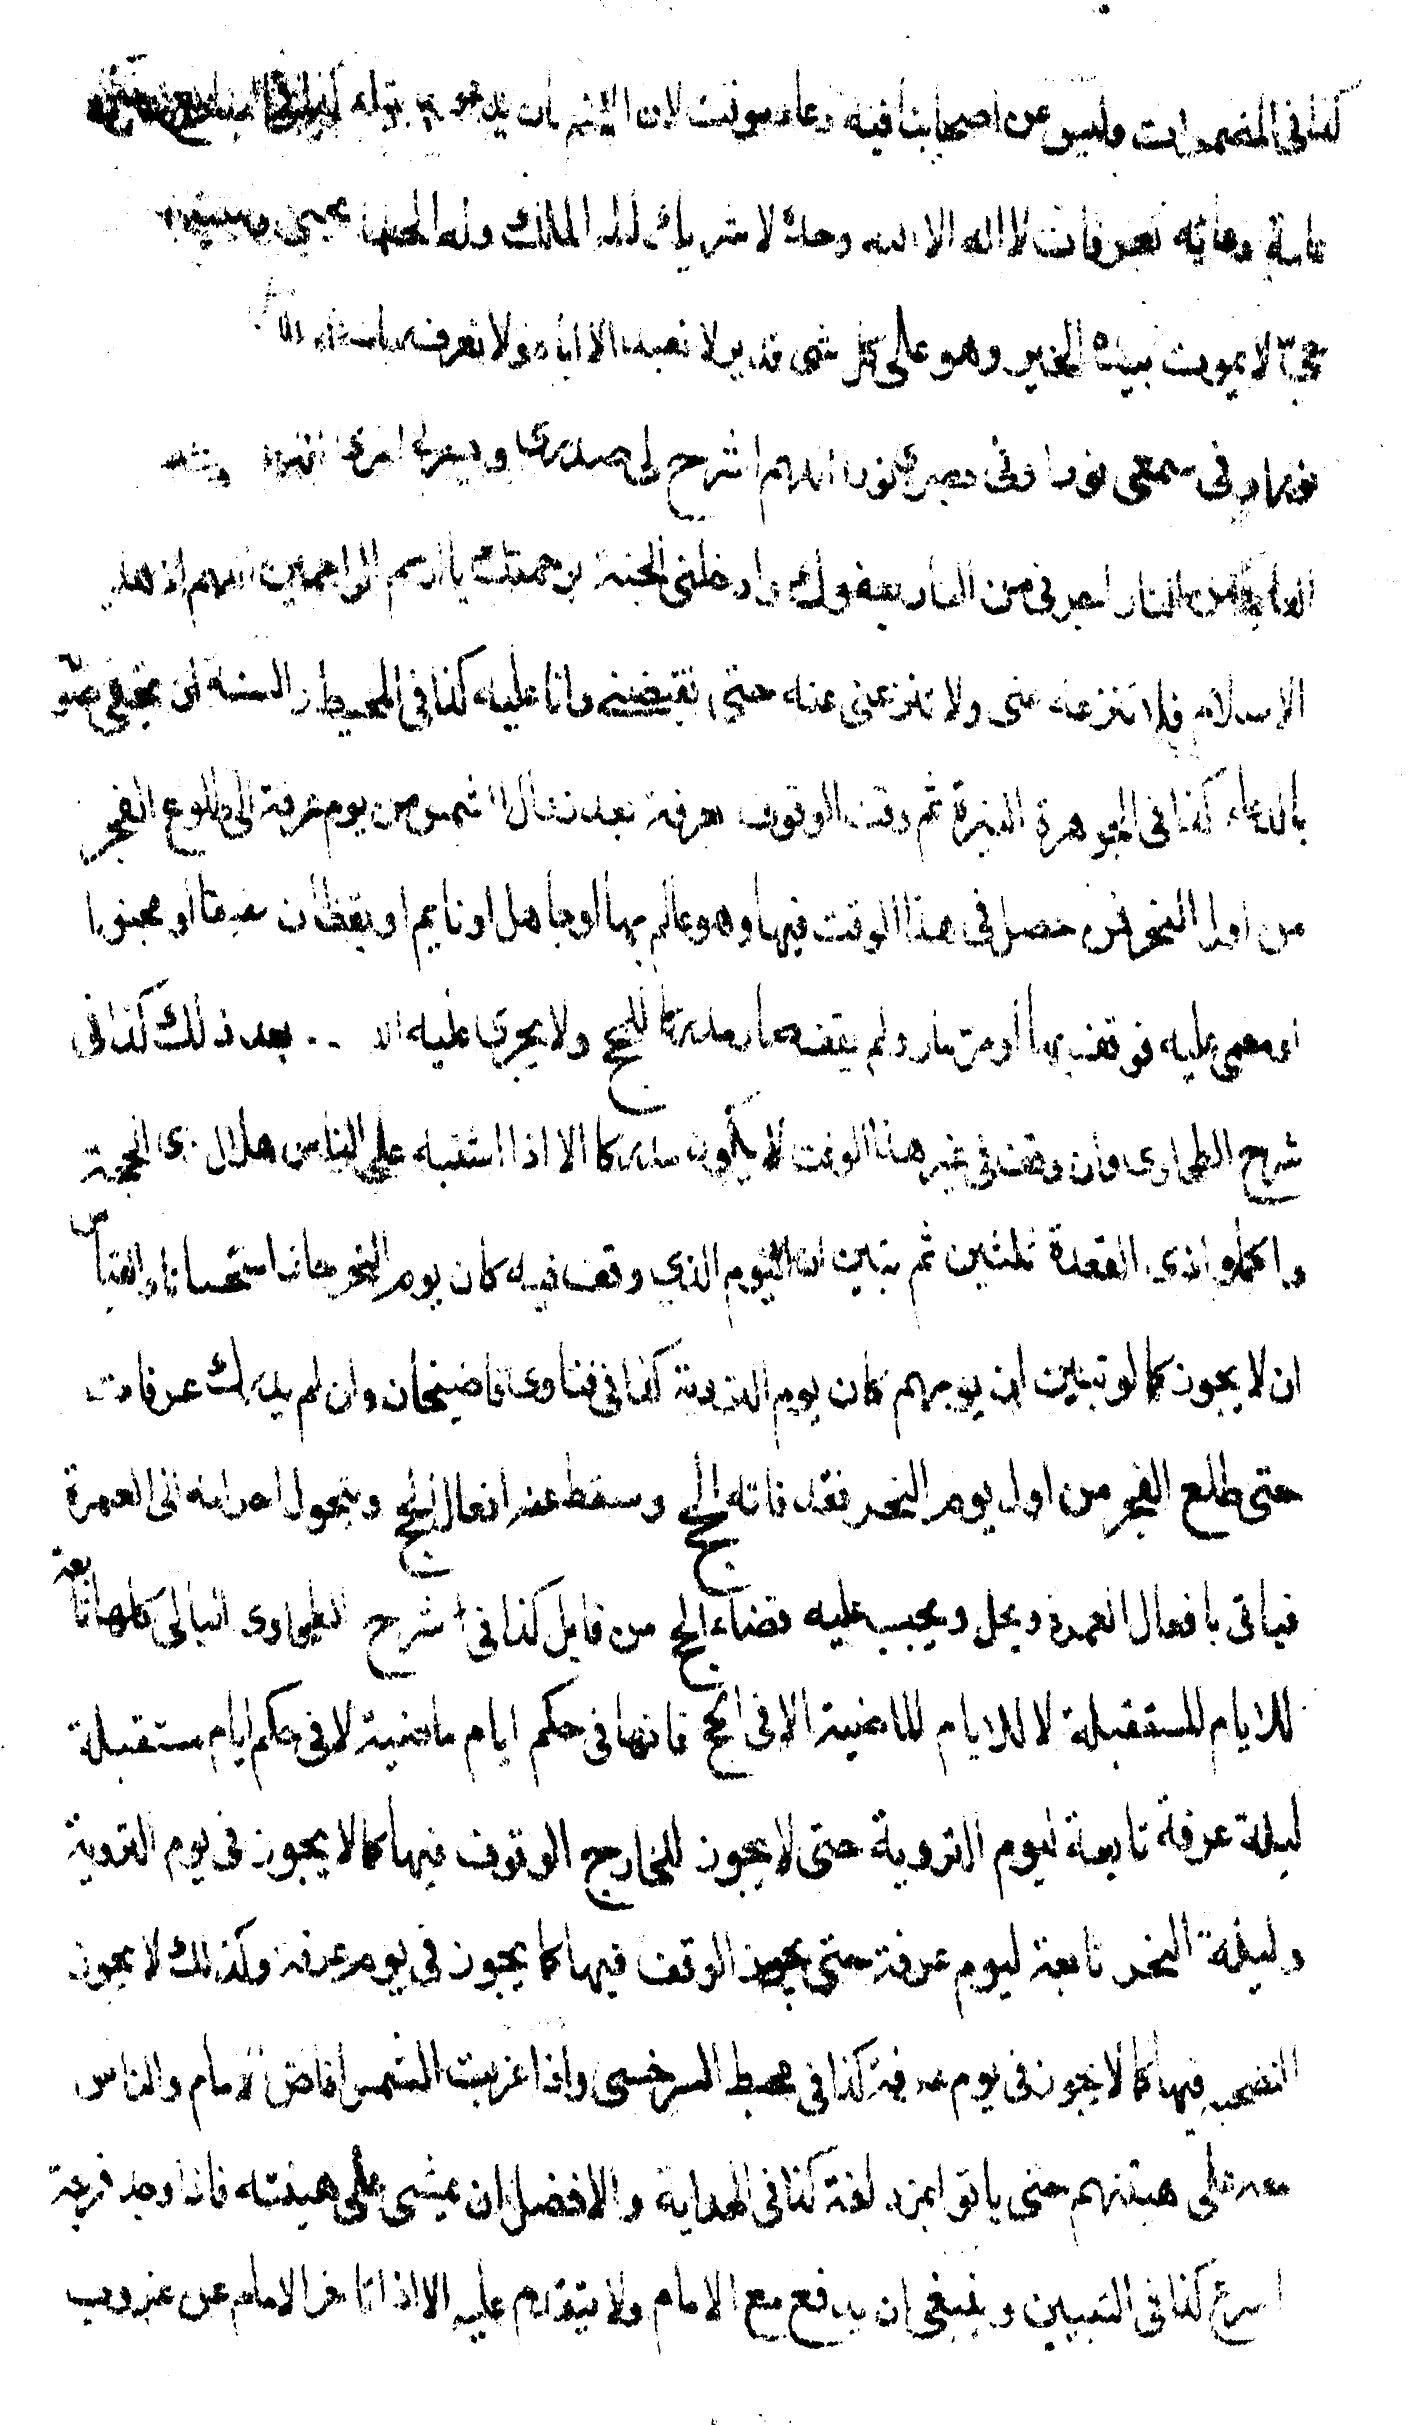 كذا في المضمرات وليس عن اصحابنا فيه دعاء موقت لان الانسان يدعو بقوله كذا في البدايع
عامة دعائه بعرفات لا اله الا الله وحده لا شريك له له الملك وله الحمد يحيي ويميت وهو
حي لا يموت بيده الخير وهو على كل شئ قدير لا نعبد الا اياه ولا نعرف ربا سواه
نورا وفي سمعي نورا وفي بصري نورا اللهم اشرح لي صدري ويسر لي امري
العائذ من النار اجرني من النار بعفوك وادخلني الجنة برحمتك يا ارحم الراحمين اللهم اذ هديتني
الاسلام فلا تنزعه عني ولا تنزعني عنه حتى تقبضني وانا عليه كذا في المحيط والسنة ان يخفي صوته
بالدعاء كذا في الجوهرة النيرة ثم وقت الوقوف بعرفة بعد زوال الشمس من يوم عرفة الى طلوع الفجر
من اول النحر فمن حصل في هذا الوقت فيها وهو عالم بها او جاهل او نايم او يقظان مفيقا او مجنونا
او مغمى عليه فوقف بها او مر مار ولم يقف صار مدركا للحج ولا يجري عليه بعد ذلك كذا في
شرح الطحاوي وان وقف في غير هذا الوقت لا يكون مدركا الا اذا اشتبه على الناس هلال ذي الحجة
واكملوا ذي القعدة ثلثين ثم تبين ان اليوم الذي وقف فيه كان يوم النحر جاز استحسانا والقياس
ان لا يجوز كما لو تبين ان يومهم كان يوم التروية كذا في فتاوى قاضيخان وان لم يدرك عرفات
حتى طلع الفجر من اول يوم النحر فقد فاته الحج وسقط عنه افعال الحج ويتحول احرامه الى العمرة
فياتي بافعال العمرة ويحل ويجب عليه قضاء الحج من قابل كذا في شرح الطحاوي الليالي كلها تابعة
للايام المستقبلة لا للايام الماضية الا في الحج فانها في حكم ايام ماضية لا في حكم ايام مستقبلة
ليلة عرفة تابعة ليوم التروية حتى لا يجوز للخارج الوقوف فيها كما لا يجوز في يوم التروية
وليلة النحر تابعة ليوم عرفة حتى يجوز الوقف فيها كما يجوز في يوم عرفة وكذلك لا يجوز
التضحية فيها كما لا يجوز في يوم عرفة كذا في محيط السرخسي واذا غربت الشمس افاض الامام والناس
معه على هينتهم حتى ياتوا مزدلفة كذا في الهداية والافضل ان يمشي على هينته فاذا وجد فرجة
اسرع كذا في التبيين وينبغي ان يدفع مع الامام ولا يتقدم عليه الا اذا تاخر الامام عن غروب